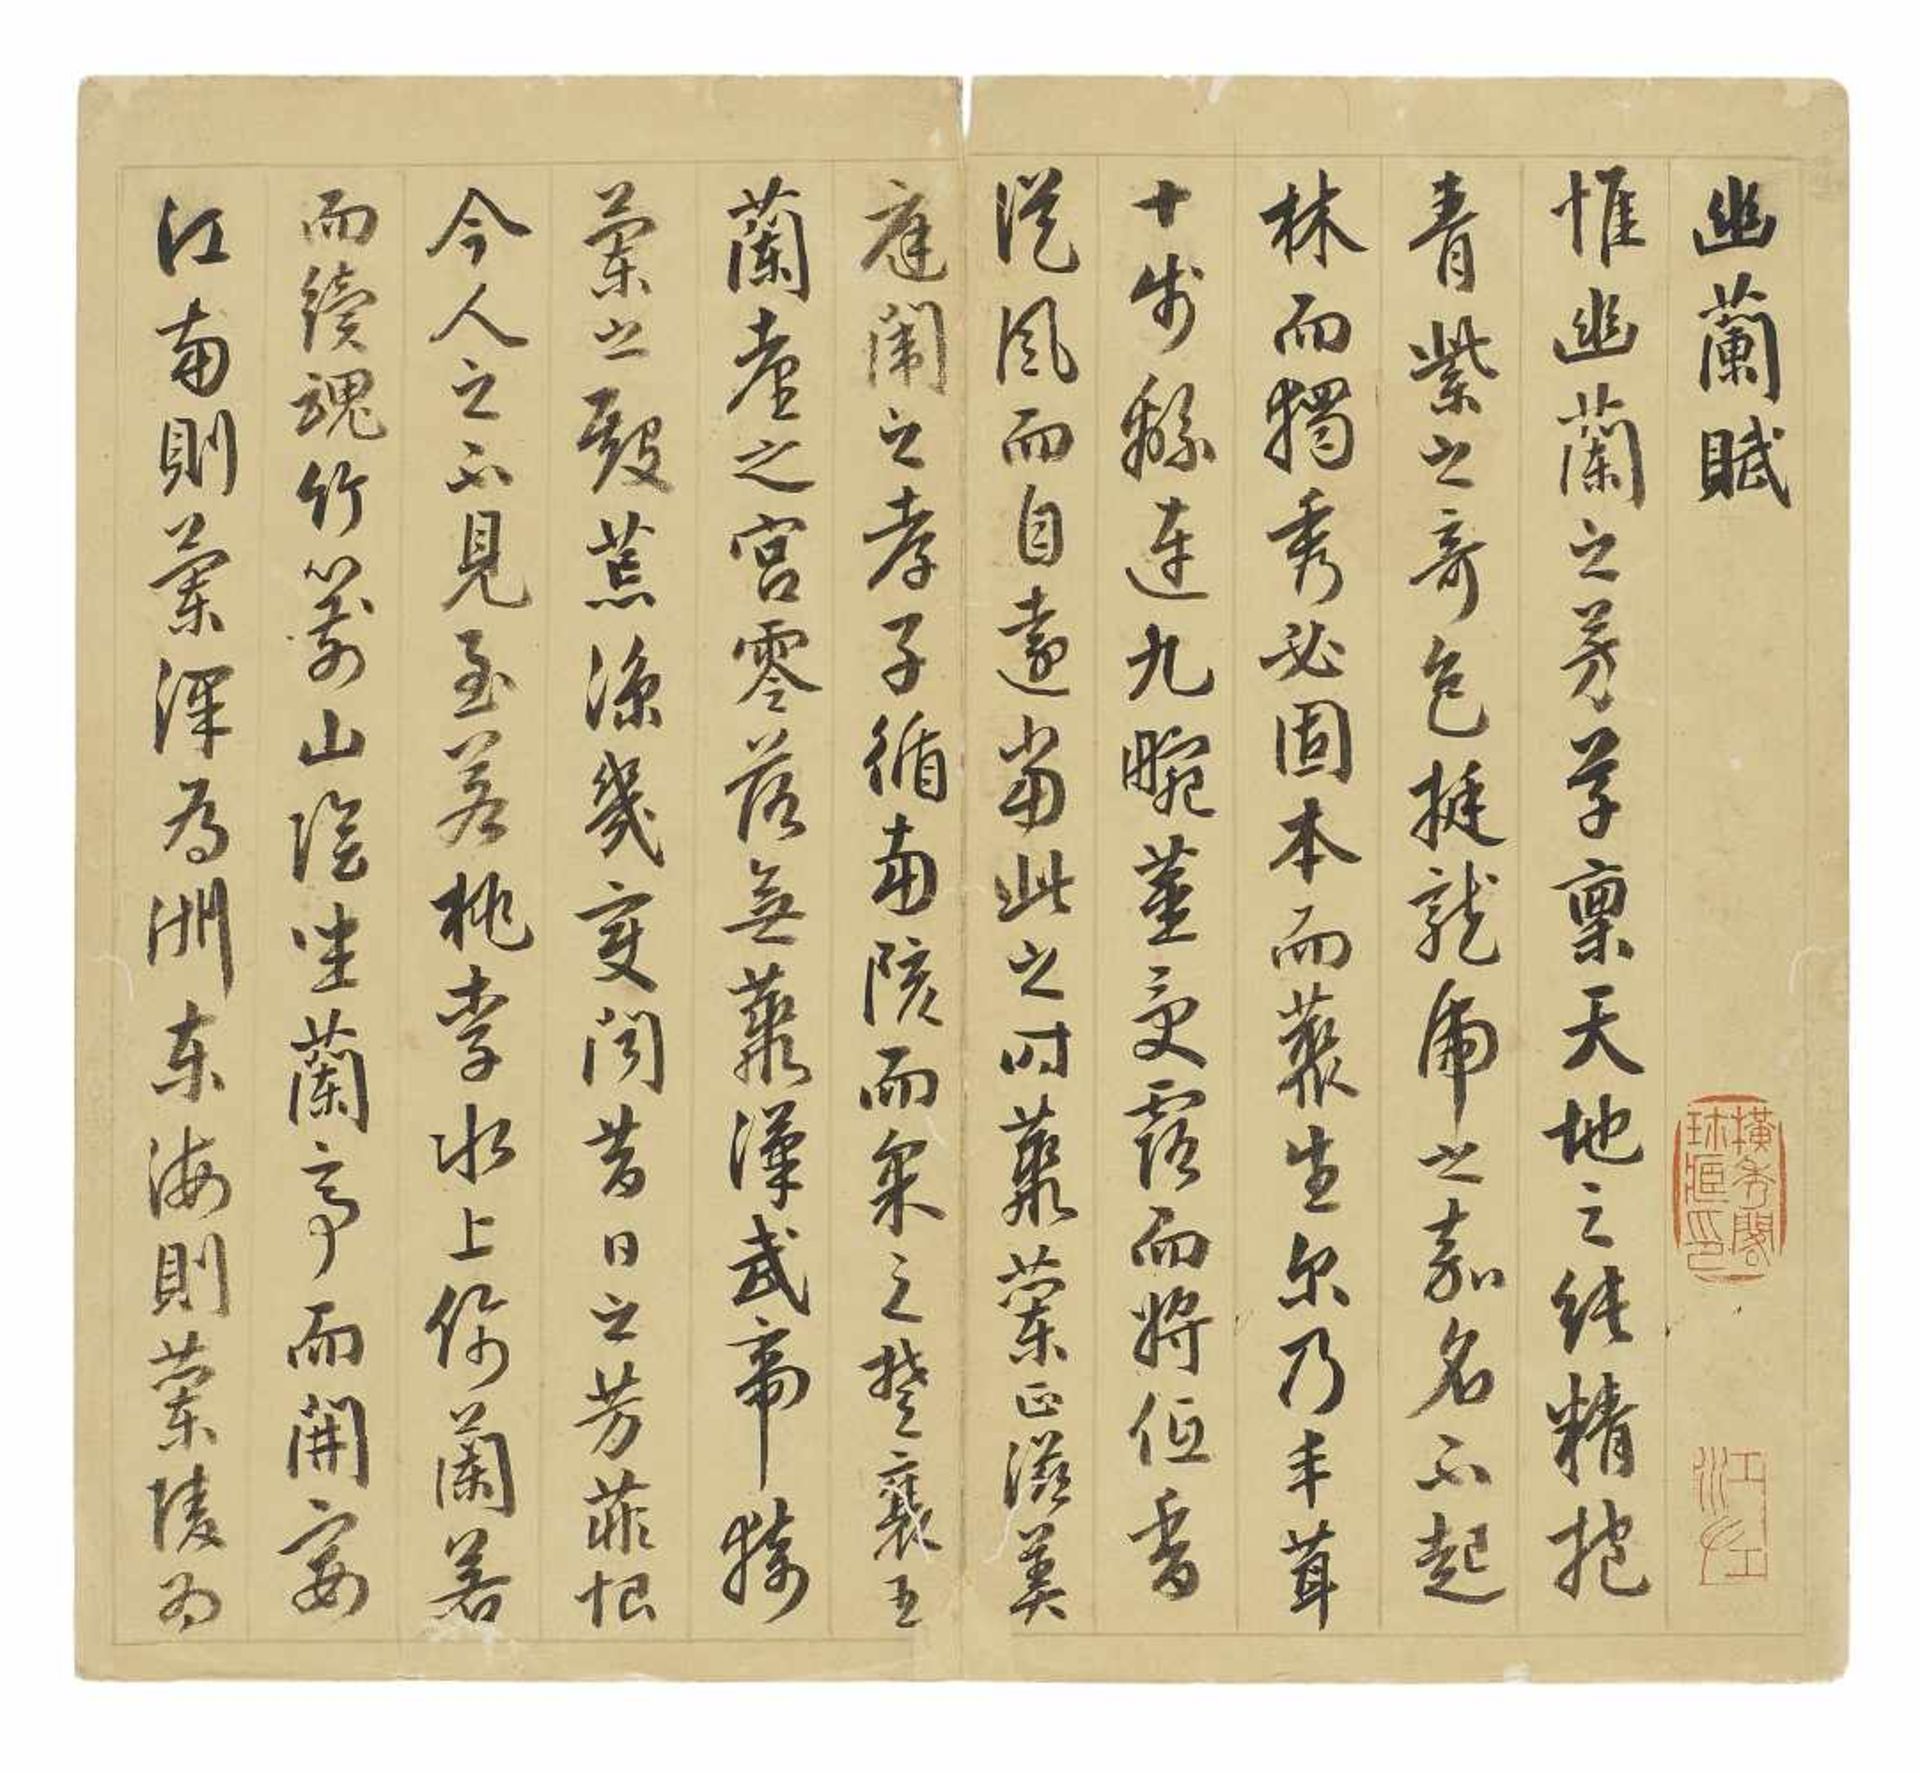 幽蘭賦
惟幽蘭之芳草稟天地之純精抱
青紫之奇色挺龍虎之嘉名不起
林而獨秀必固本而叢生尔乃丰茸
十步緜連九畹莖受露而將低香
從風而自遠當此之時叢蘭正滋美
庭闈之孝子循南陔而采之楚襄王
蘭臺之宮零落無叢漢武帝猗
蘭之殿荒涼幾變聞昔日之芳菲恨
今人之不見至若桃李水上佩蘭若
而續魂竹箭山陰坐蘭亭而開宴
江南則蘭澤為洲東海則蘭陵為